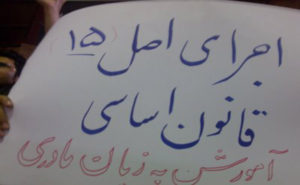 اجرای اصل (۱۵
قانون اساسی
آموزش به زبان مادری